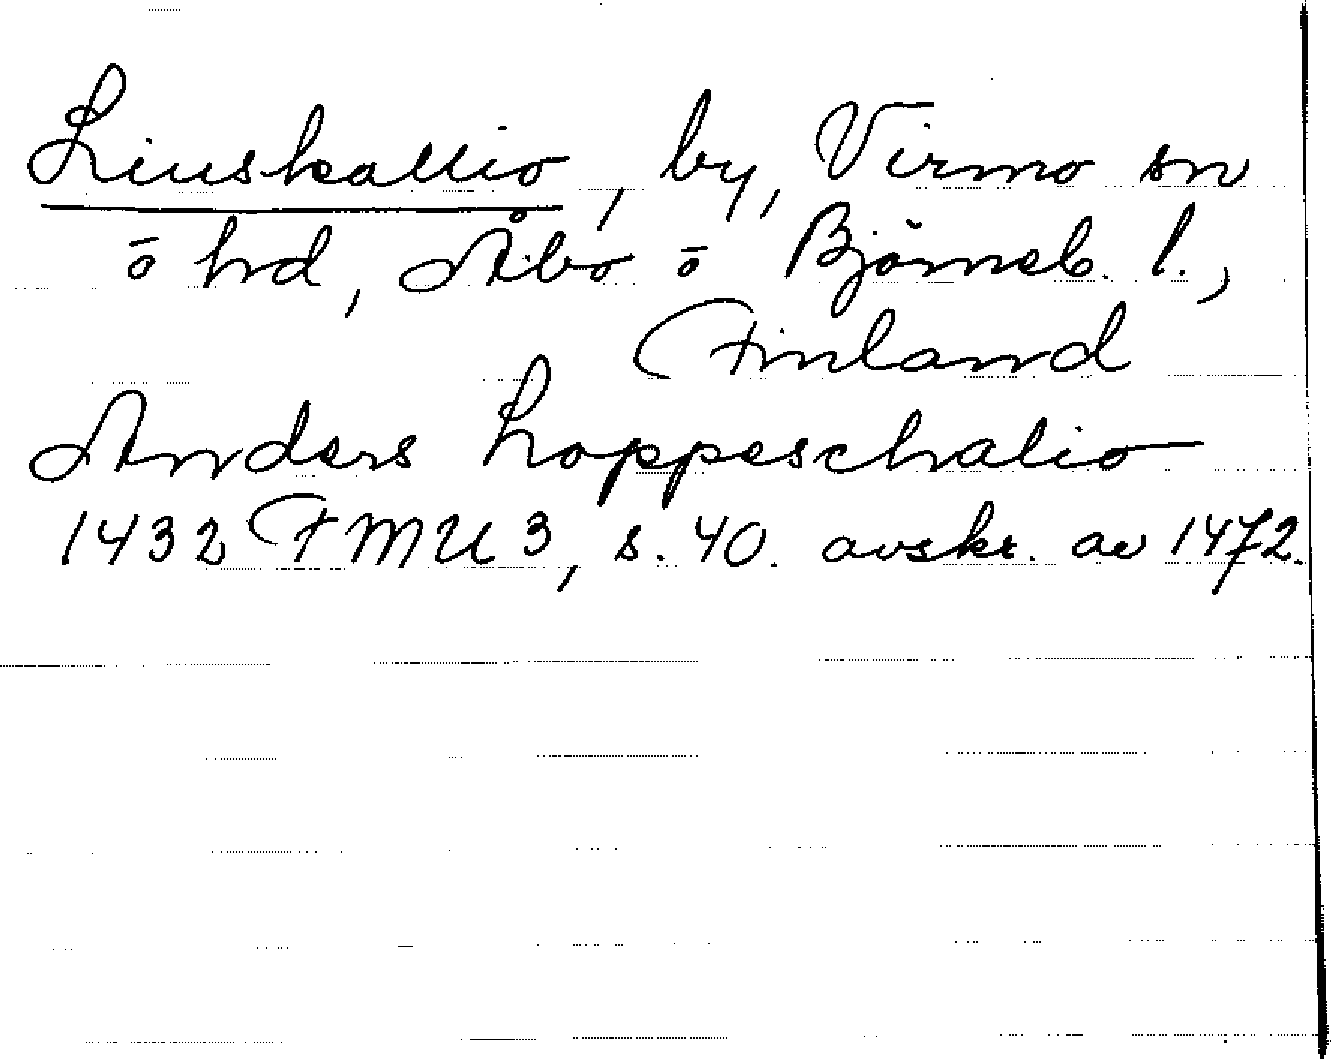 Liuskallio, by, Virmo sn
ō hd, Åbo ō Björneb. l.,
Finland
Anders Loppeschalio
1432 FMU 3, s. 40. avskr. av 1472.